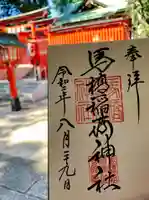 奉拝
馬橋稲荷神社
令和二年八月二十九日